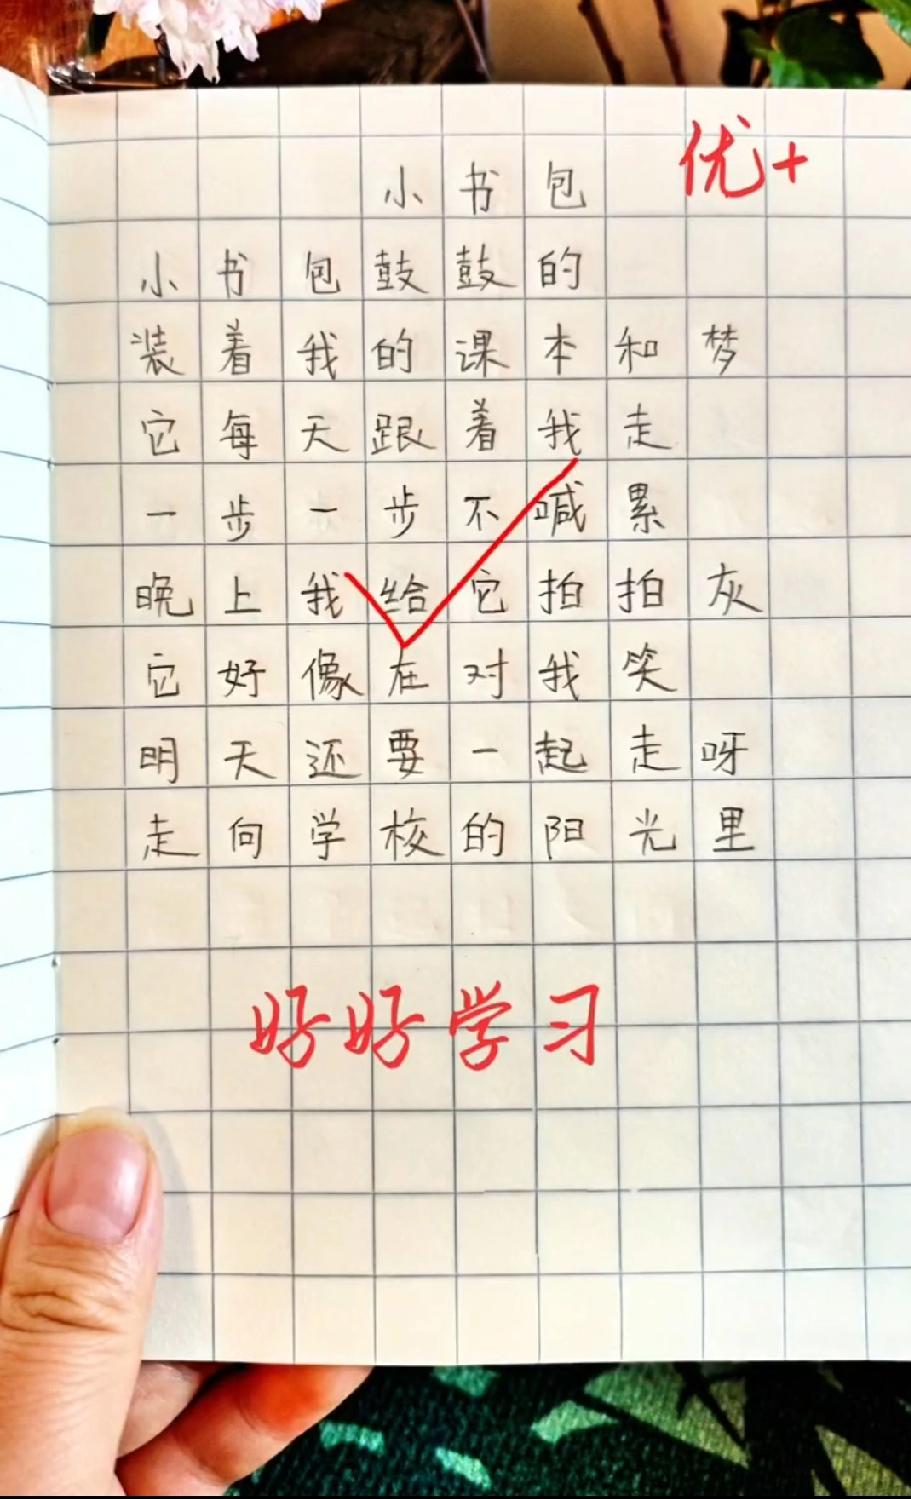 优+
小书包
小书包鼓鼓的
装着我的课本和梦
它每天跟着我走
一步一步不喊累
晚上我给它拍拍灰
它好像在对我笑
明天还要一起走呀
走向学校的阳光里
好好学习